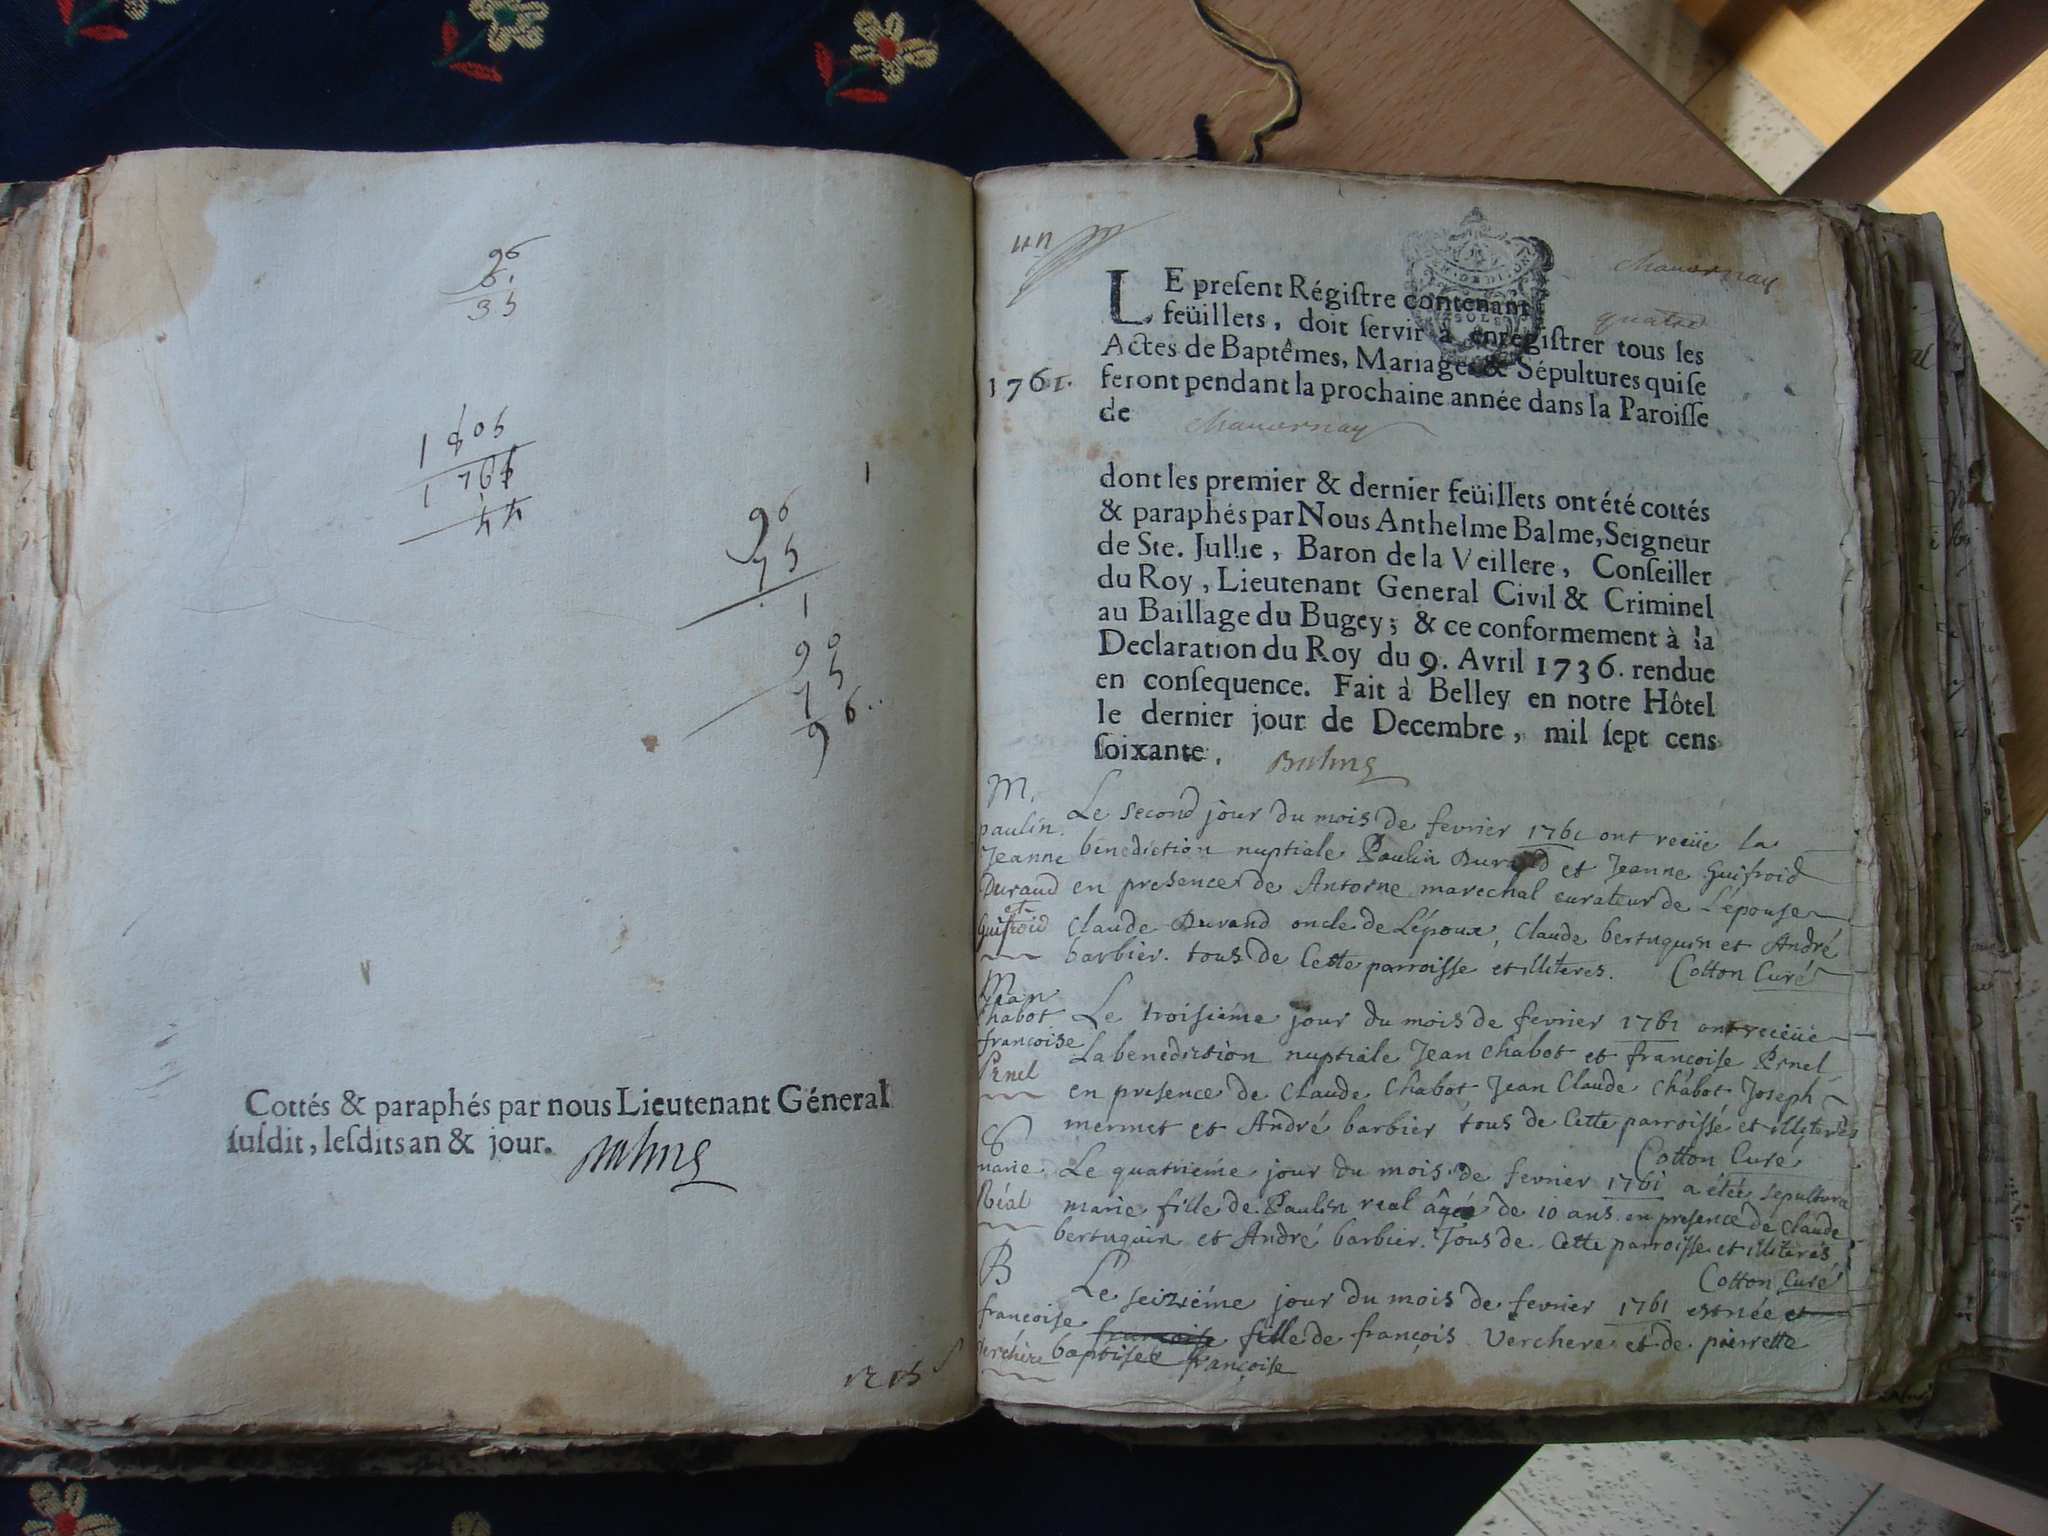 96
6.
35
1405
1761
44
1
96
75
1
90
5
7
96..
Cottés & paraphés par nous Lieutenant Géneral
ſuſdit, leſdits an & jour. Balme
un
chavornay
LE preſent Régiſtre contenant quatre
feüillets, doit ſervir à enregiſtrer tous les
Actes de Baptêmes, Mariages & Sépultures qui ſe
1761. feront pendant la prochaine année dans la Paroiſſe
de chavornay
dont les premier & dernier feüillets ont été cottés
& paraphés par Nous Anthelme Balme, Seigneur
de Ste. Jullie, Baron de la Veillere, Conſeiller
du Roy, Lieutenant General Civil & Criminel
au Baillage du Bugey; & ce conformement à la
Declaration du Roy du 9. Avril 1736. rendue
en conſequence. Fait à Belley en notre Hôtel
le dernier jour de Decembre, mil ſept cens
ſoixante. Balme
M.
paulin
Jeanne
Durand
et
Guifroid
Le second jour du mois de fevrier 1761 ont reciie la
benediction nuptiale Paulin Durand et Jeanne Guifroid
en presence de Antoine marechal curateur de L'épouse
Claude Durand oncle de L'époux, Claude bertuquin et André
barbier. tous de Cette parroisse et illiteres. Cotton Curé
M
Jean
Chabot
françoise
Le troisiéme jour du mois de fevrier 1761 ont reciëüe
La benediction nuptiale Jean Chabot et françoise Pernel
en presence de Claude Chabot, Jean Claude Chabot Joseph
mermet et André barbier tous de Cette parroisse et illiteres
Cotton Curé
S
marie
Réal
Le quatrieme jour du mois de fevrier 1761 a étée sepulturée
marie fille de Paulin real âgée de 10 ans en presence de Claude
bertuquin et André barbier. Tous de Cette parroisse et illiteres
Cotton Curé
B
françoise
Verchère
Le seizième jour du mois de fevrier 1761 est née et
baptisée françoise fille de françois Verchere et de pierrette
françoise